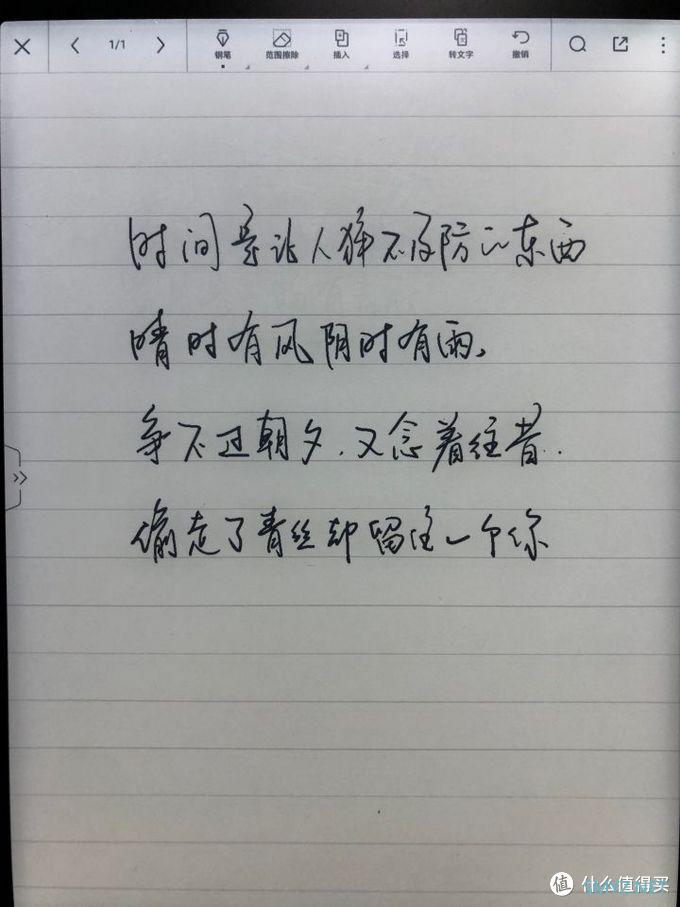 1/1
钢笔 范围擦除 插入 选择 转文字 撤销
时间是让人猝不及防的东西
晴时有风阴时有雨。
争不过朝夕.又念着往昔.
偷走了青丝却留住一个你
值 什么值得买